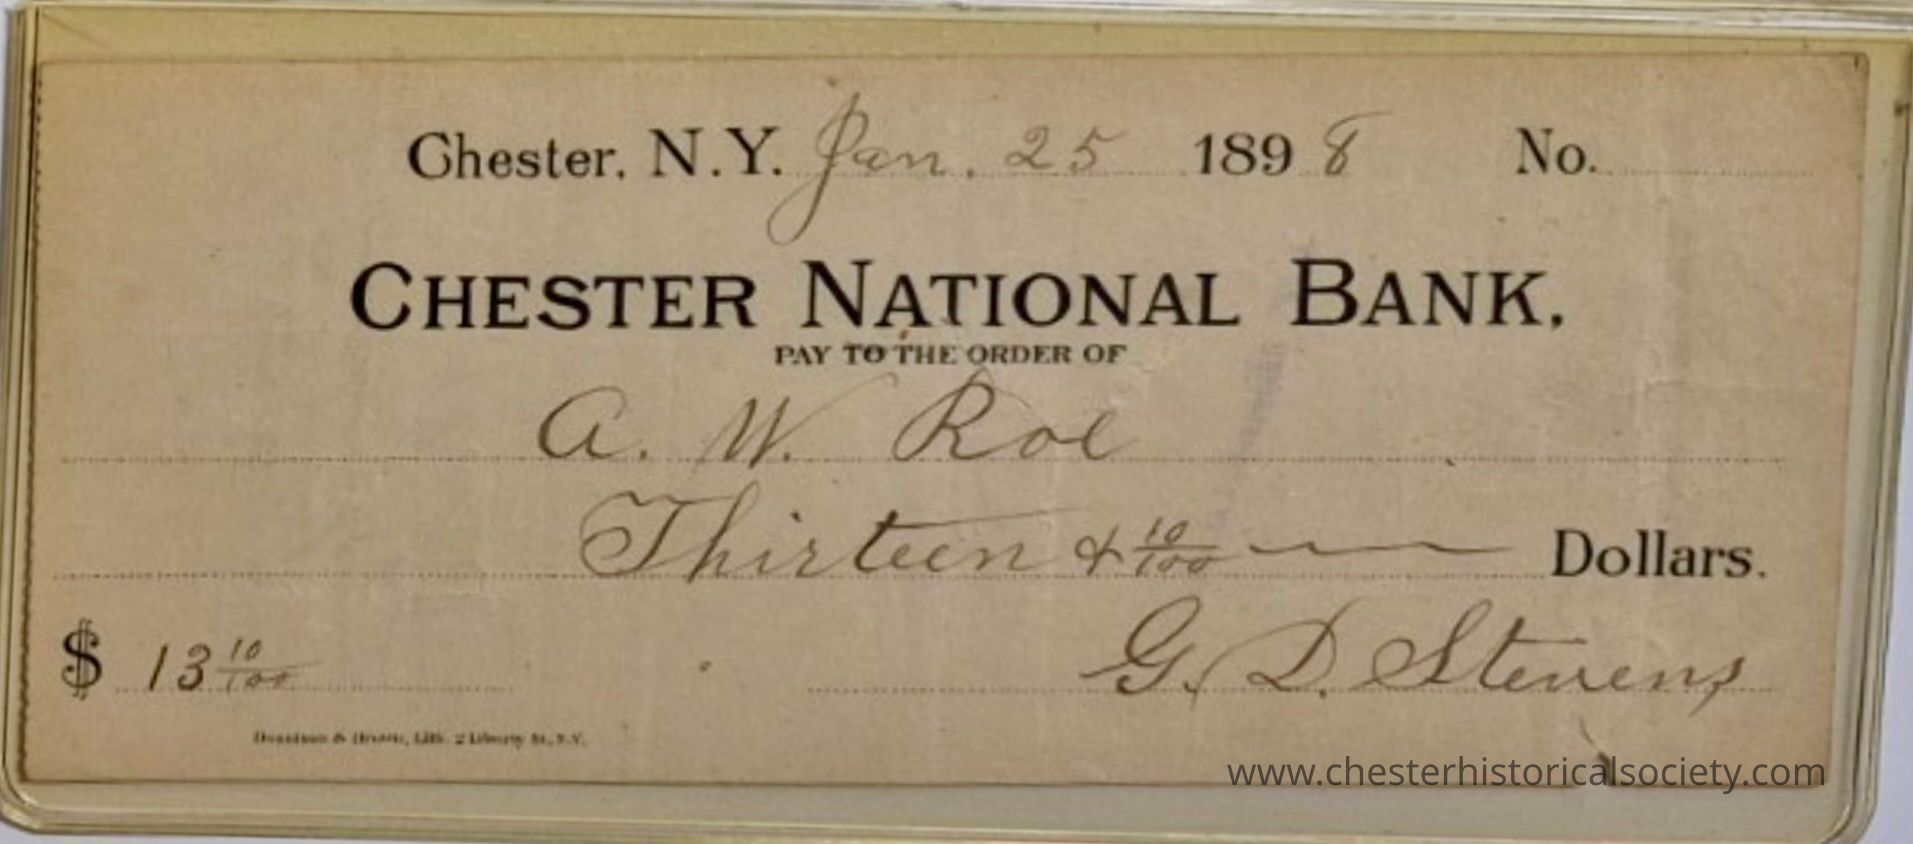 Chester, N.Y. Jan. 25 1898 No.
CHESTER NATIONAL BANK,
PAY TO THE ORDER OF
A. W. Roe
Thirteen & 10/100 Dollars.
$ 13 10/100
G. D. Stevens
Lith. 2 Liberty St., N.Y.
www.chesterhistoricalsociety.com